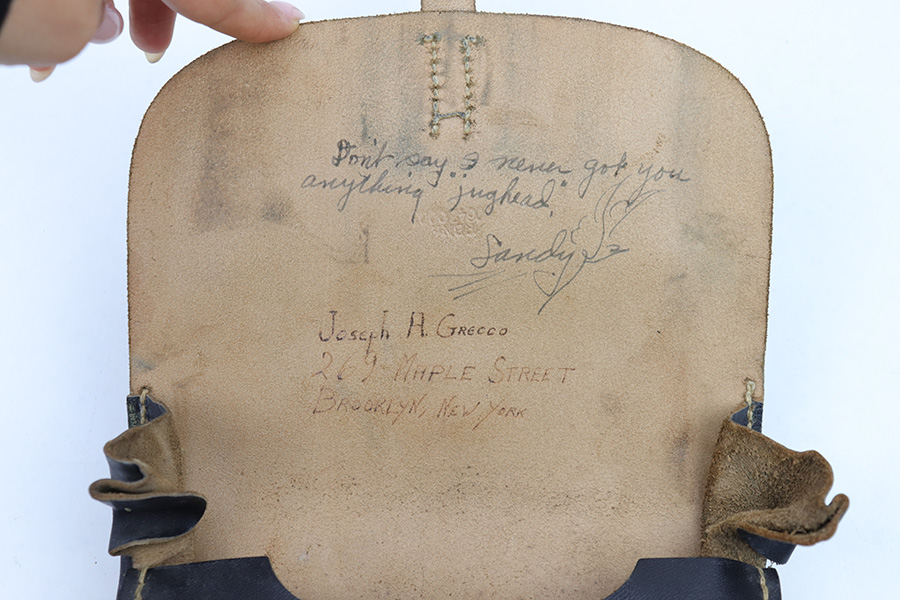 Don't say I never got you
anything "jughead."
Sandy
Joseph H. Grecco
269 Maple Street
Brooklyn, New York